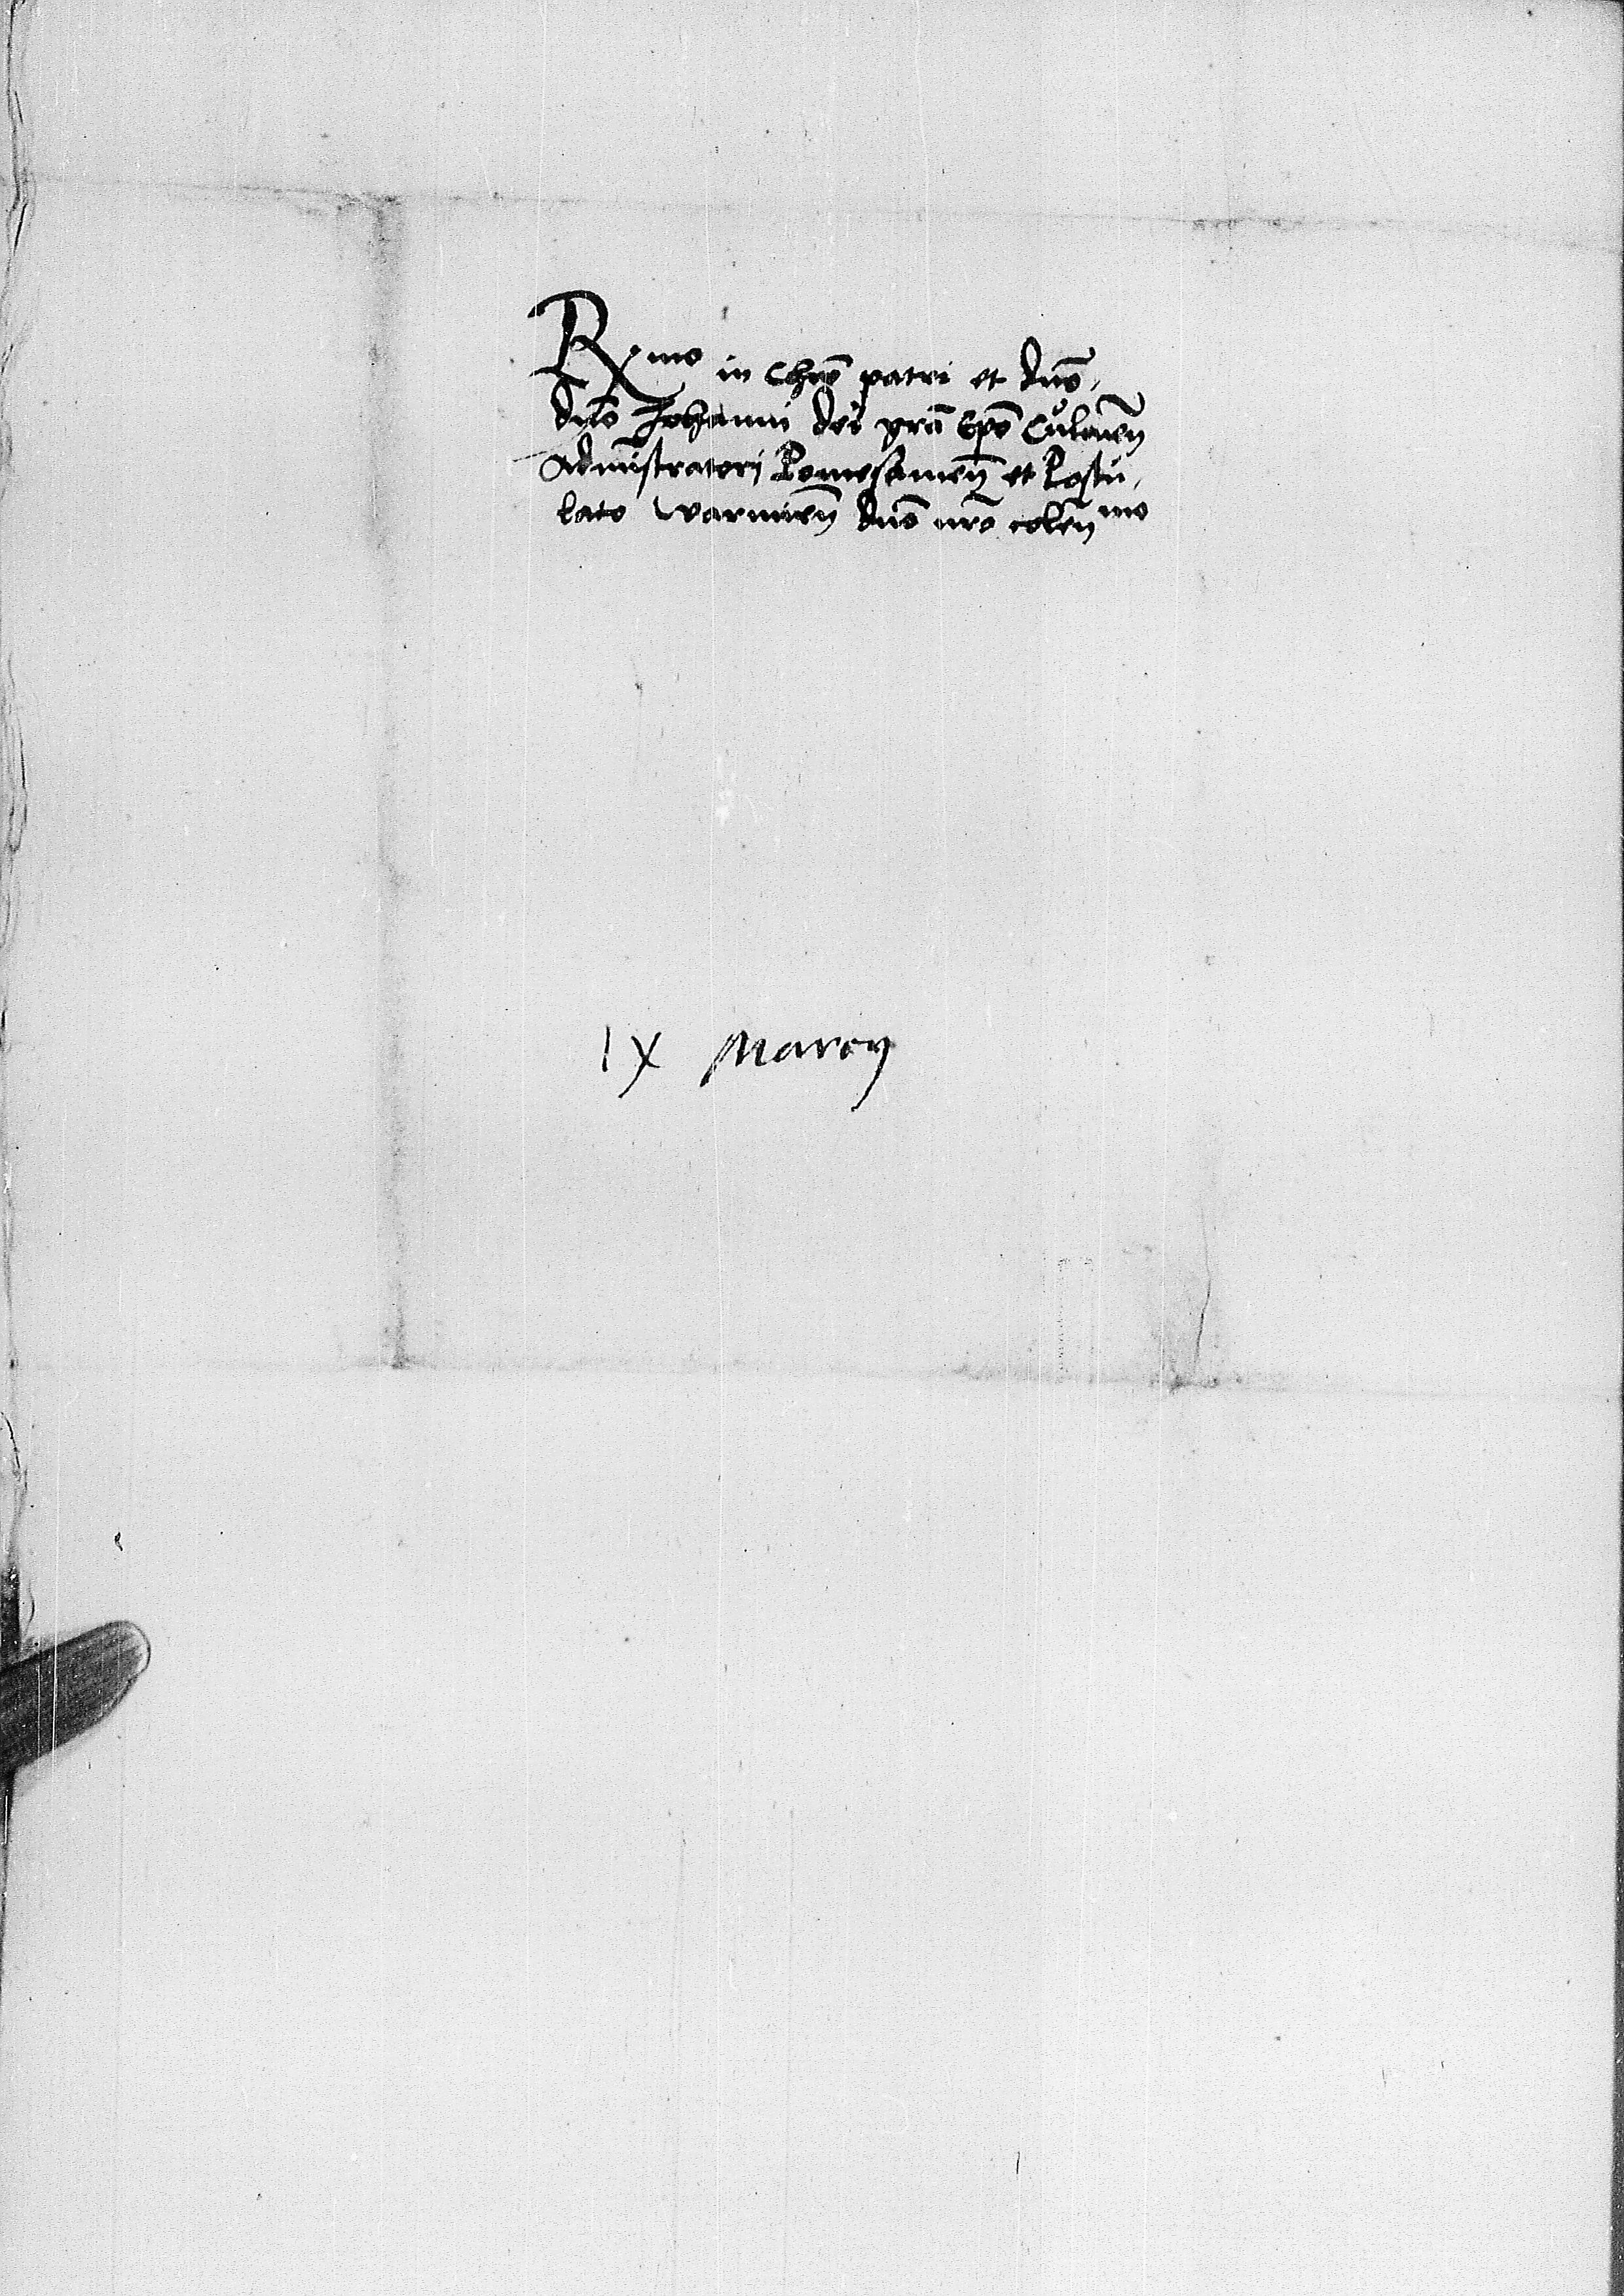 Rmo in Chro patri et dno,
dno Johanni dei gra Epo Culmen
Administratori Pomesanien et Postu,
lato Warmien dno nro colen mo
IX Marcy